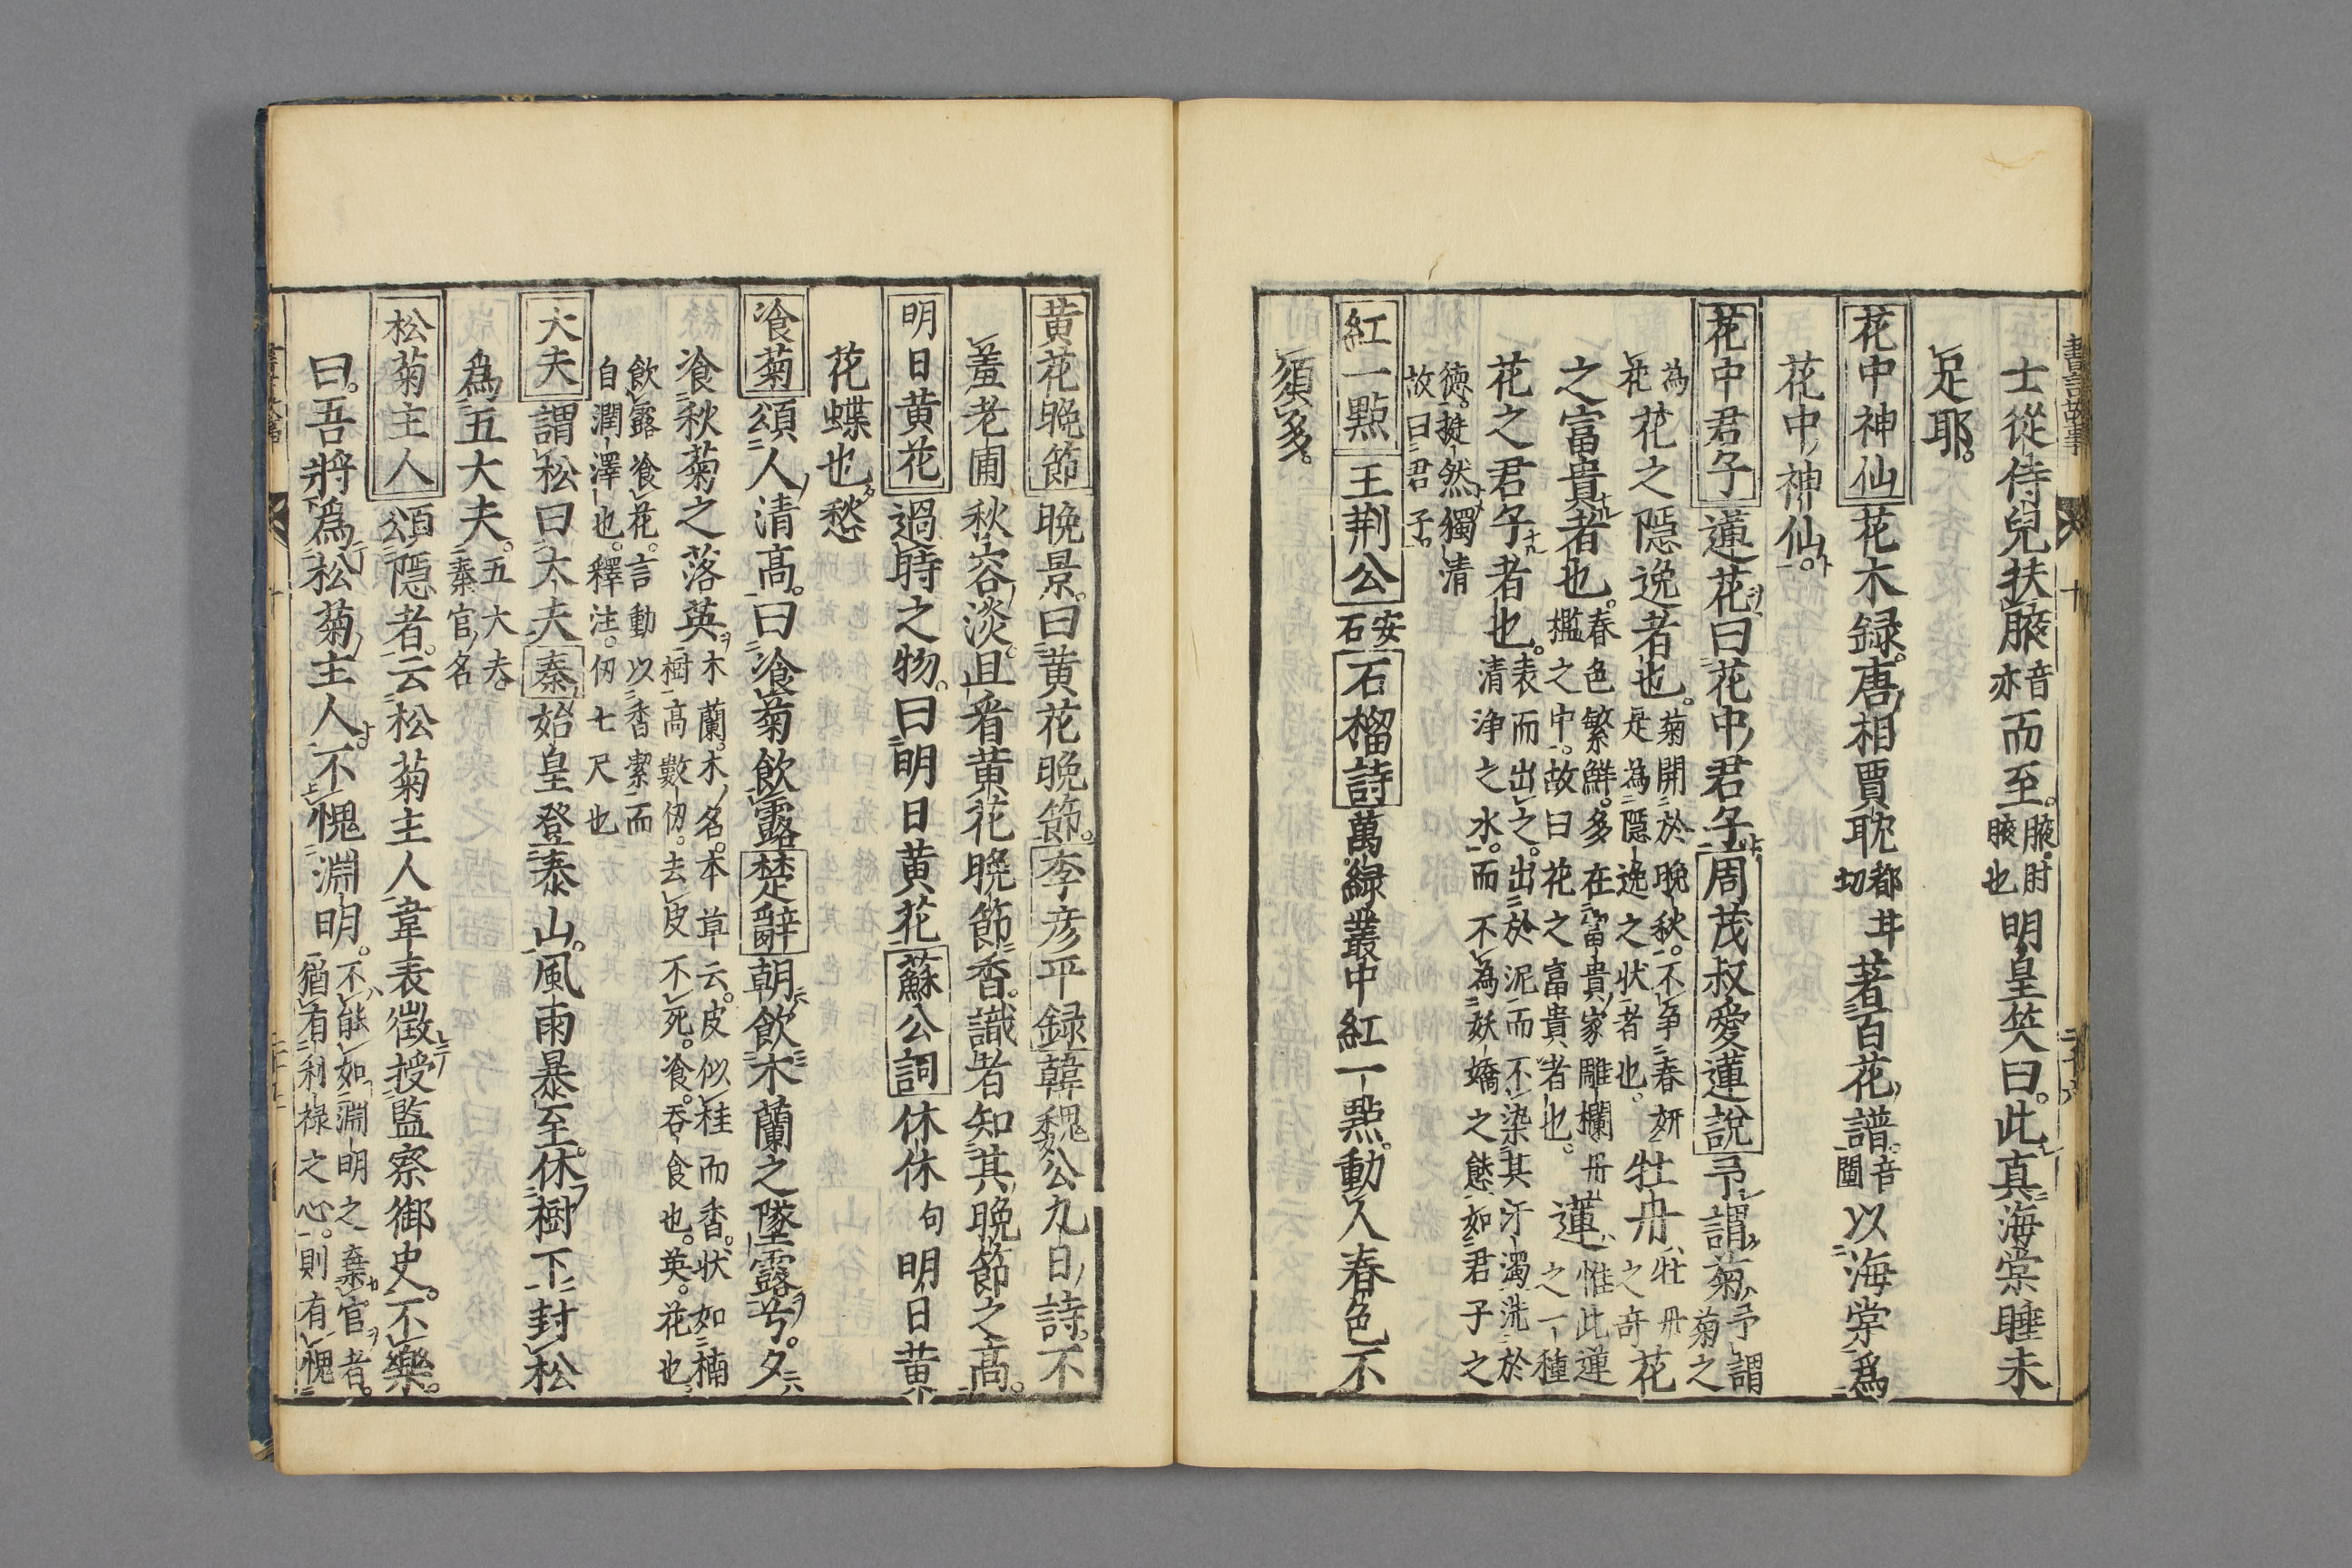 士從侍兒扶腋音亦而至。腋。肘腋也明皇笑曰。此真海棠睡未
足耶。
花中神仙花木録。唐相賈耽都耳切著百花譜。音圃以海棠爲
花中神仙。
花中君子蓮花曰花中君子周茂叔愛蓮説予謂菊予謂菊之
為花花之隠逸者也。菊開於晩秋。不爭春妍是為隠逸之状者也。牡丹牡丹之奇花
之富貴者也。春色繁鮮。多在富貴家雕欄檻之中。故曰花之富貴者也。蓮惟此蓮之一種
花之君子者也。表而出之。出於泥而不染其汙濁洗於清浄之水。而不為妖嬌之態如君子之
徳。挺然獨清故曰君子。
紅一點王荆公安石石榴詩萬緑叢中紅一點。動人春色不
須多。
黄花晩節晩景。曰黄花晩節。李彦平録韓魏公九日詩。不
羞老圃秋容淡。且看黄花晩節香。識者知其晩節之高。
明日黄花過時之物。曰明日黄花蘇公詞休休句明日黄
花蝶也愁
飡菊頌人清高。曰飡菊飲露楚辭朝飲木蘭之墜露兮。夕
飡秋菊之落英木蘭。木名。本草云。皮似桂而香。状如楠樹高數仭。去皮不死。飡。吞食也。英。花也
飲露飡花。言動以香潔而自潤澤也。釋注。仭七尺也
大夫謂松曰大夫秦始皇登泰山。風雨暴至。休樹下封松
爲五大夫。五大夫。秦官名
松菊主人頌隠者。云松菊主人韋表微授監察御史。不樂。
曰。吾將爲松菊主人。不愧淵明。不能如淵明之棄官者。猶有利禄之心。則有愧